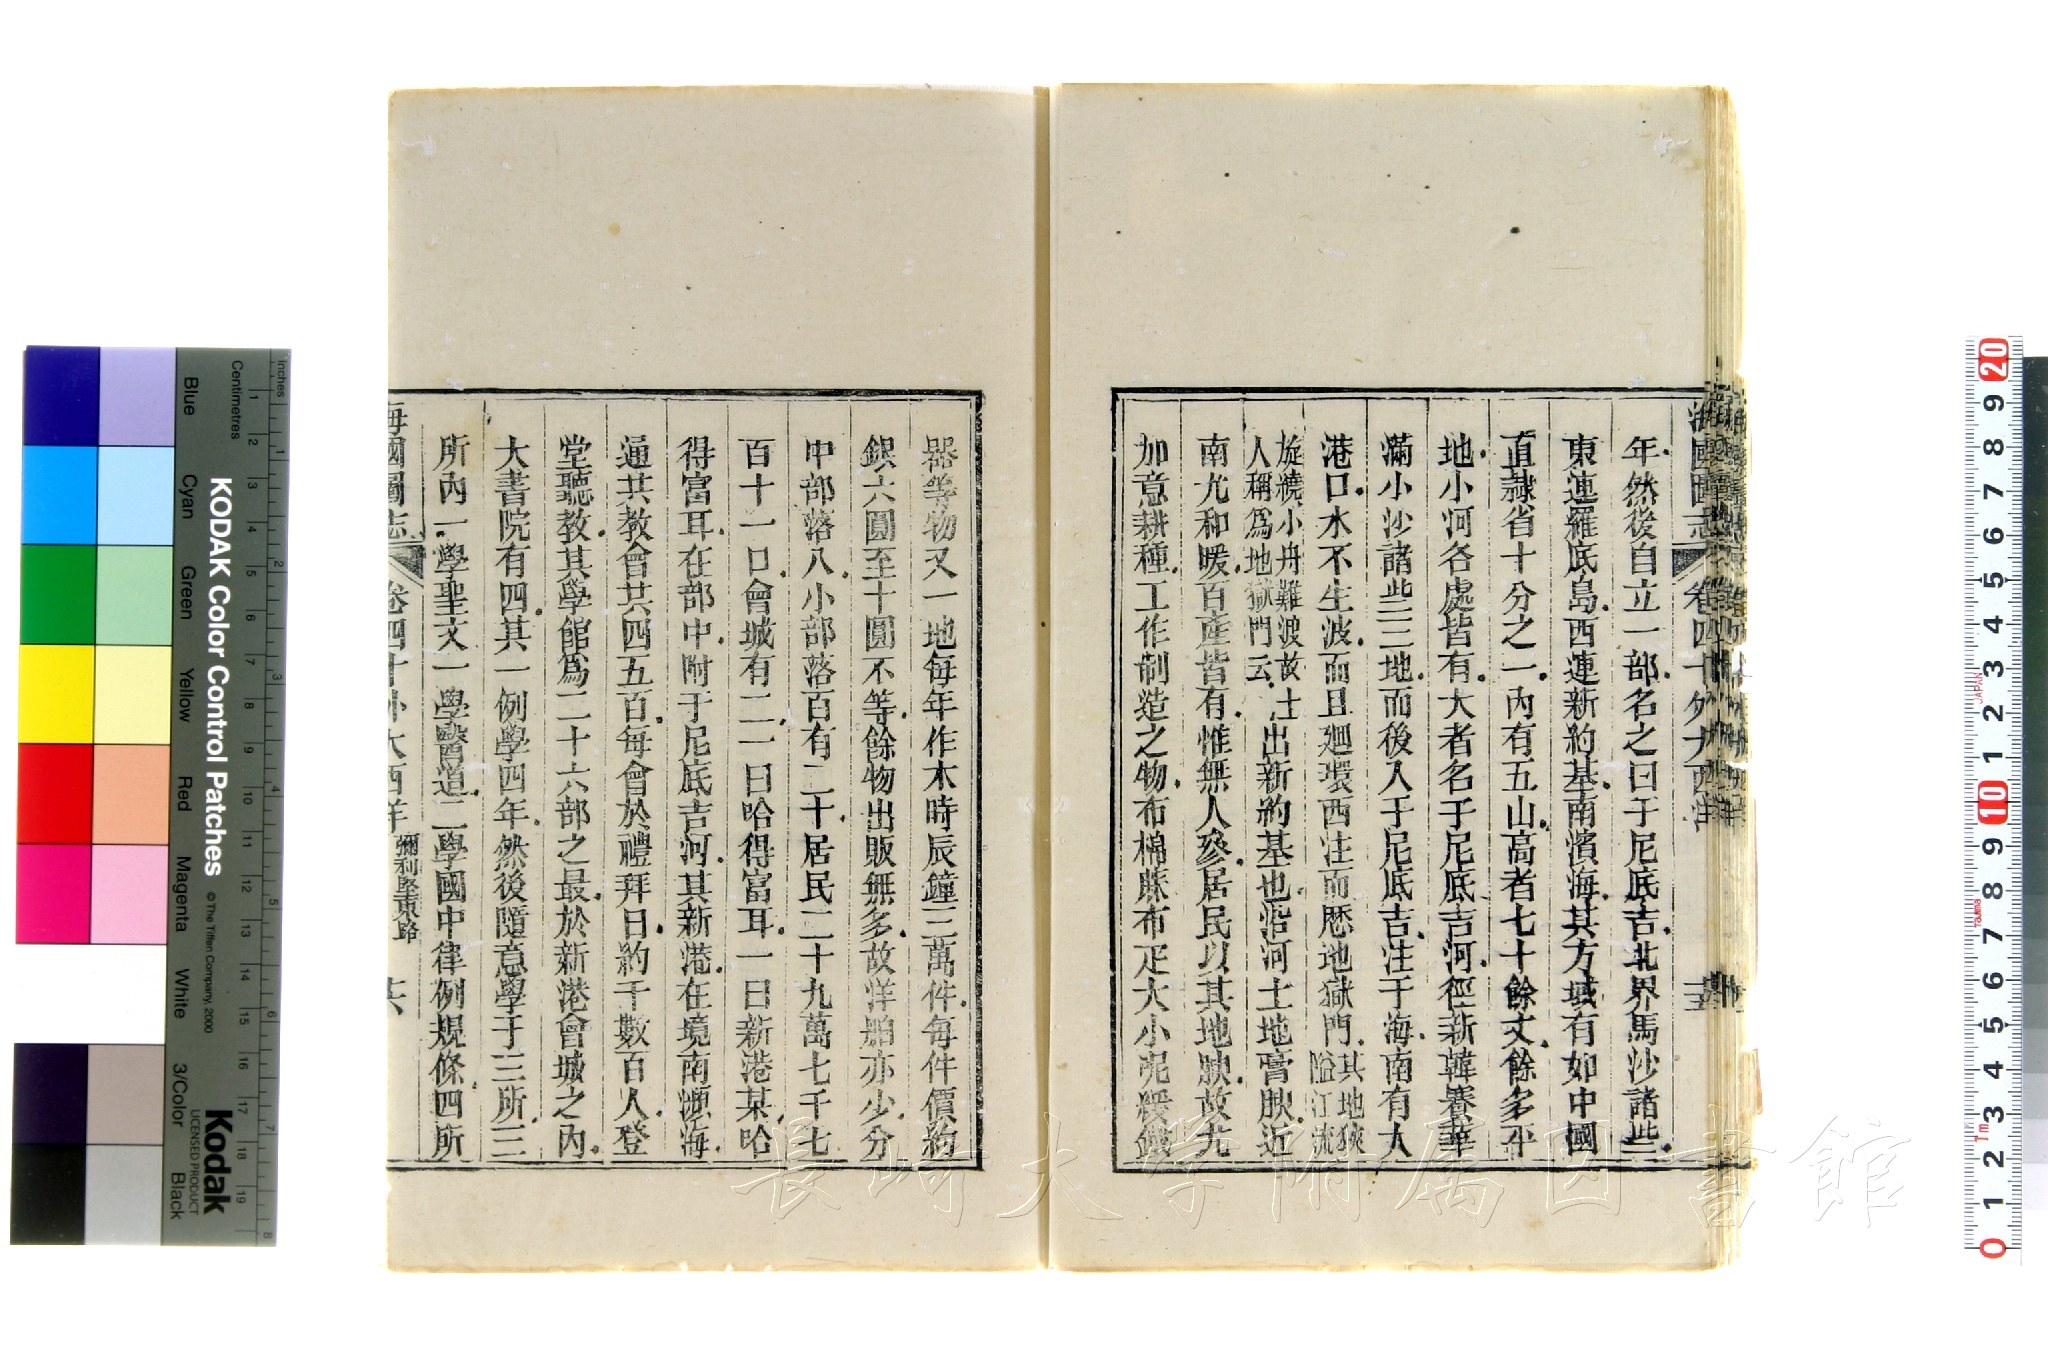 海國圖志 卷四十 外大西洋 十五
年然後自立一部名之曰于尼底吉北界馬沙諸些
東連羅底島西連新約基南濱海其方域有如中國
直隸省十分之一內有五山高者七十餘文餘多平
地小河各處皆有大者名于尼底吉河徑新韓賽華
滿小沙諸些三地而後入于尼底吉注于海南有大
港口水不生波而且廻環西注而歷地獄門其地狹隘江流
旋繞小舟難渡故土人稱爲地獄門云出新約基也沿河土地膏腴近
南尤和暖百產皆有惟無人參居民以其地腴故尤
加意耕種工作制造之物布棉蔴布疋大小呢緞鐵
器等物又一地每年作木時辰鐘三萬件每件價約
銀六圓至十圓不等餘物出販無多故洋舶亦少分
中部落八小部落百有二十居民二十九萬七千七
百十一口會城有二一曰哈得富耳一曰新港某哈
得富耳在部中附于尼底吉河其新港在境南濱海
通共教會共四五百每會於禮拜日約千數百人登
堂聽教其學館爲二十六部之最於新港會城之內
大書院有四其一例學四年然後隨意學于三所三
所內一學聖文一學醫道二學國中律例規條四所
海國圖志 卷四十 外大西洋 彌利堅東路 十六
KODAK Color Control Patches
© The Tiffen Company, 2000
Kodak
LICENSED PRODUCT
Inches
Centimetres
Blue Cyan Green Yellow Red Magenta White 3/Color Black
長崎大学附属図書館
JAPAN
Tajima